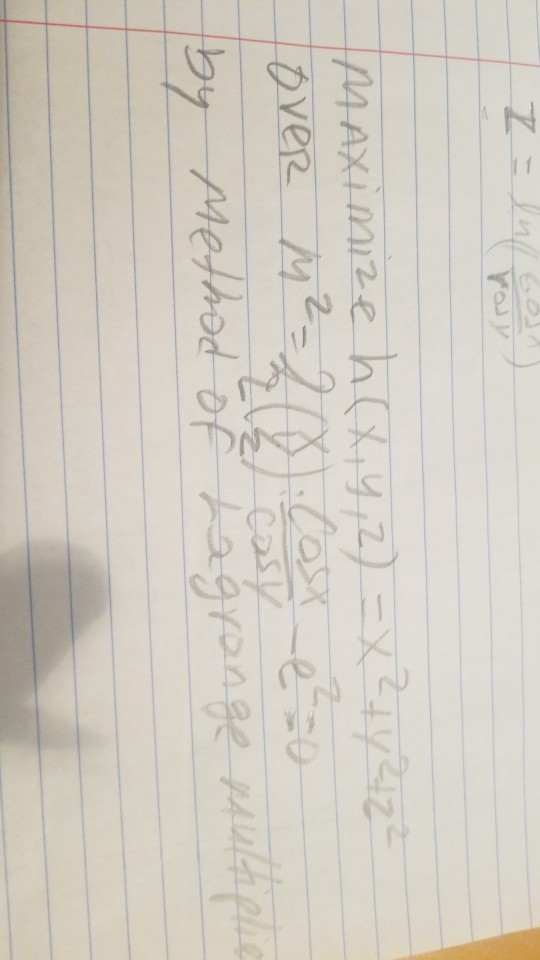 z = ln(cosx/cosy)
Maximize h(x,y,z) = x²+y²+z²
over M² = {(x y z) : cosx/cosy - e^z = 0
by Method of Lagrange multiplie